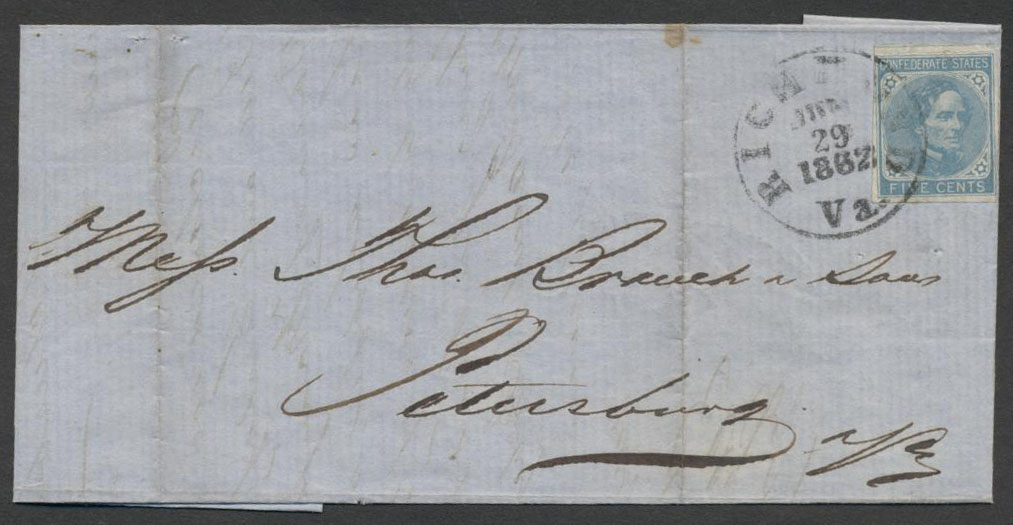 CONFEDERATE STATES
FIVE CENTS
RICHMOND
29
1862
Va.
Mess. Thos. Branch & Sons
Petersburg
Va